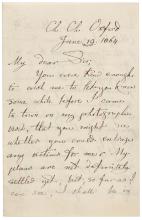 Ch. Ch. Oxford
June 19. 1864
My dear Sir,
You were kind enough
to wish me to let you know
some while before I came
to town on my photographic
visit, that you might see
whether you could entrap
any victims for me. My
plans are not definitely
settled yet, but, so far as I
can see, I shall be in